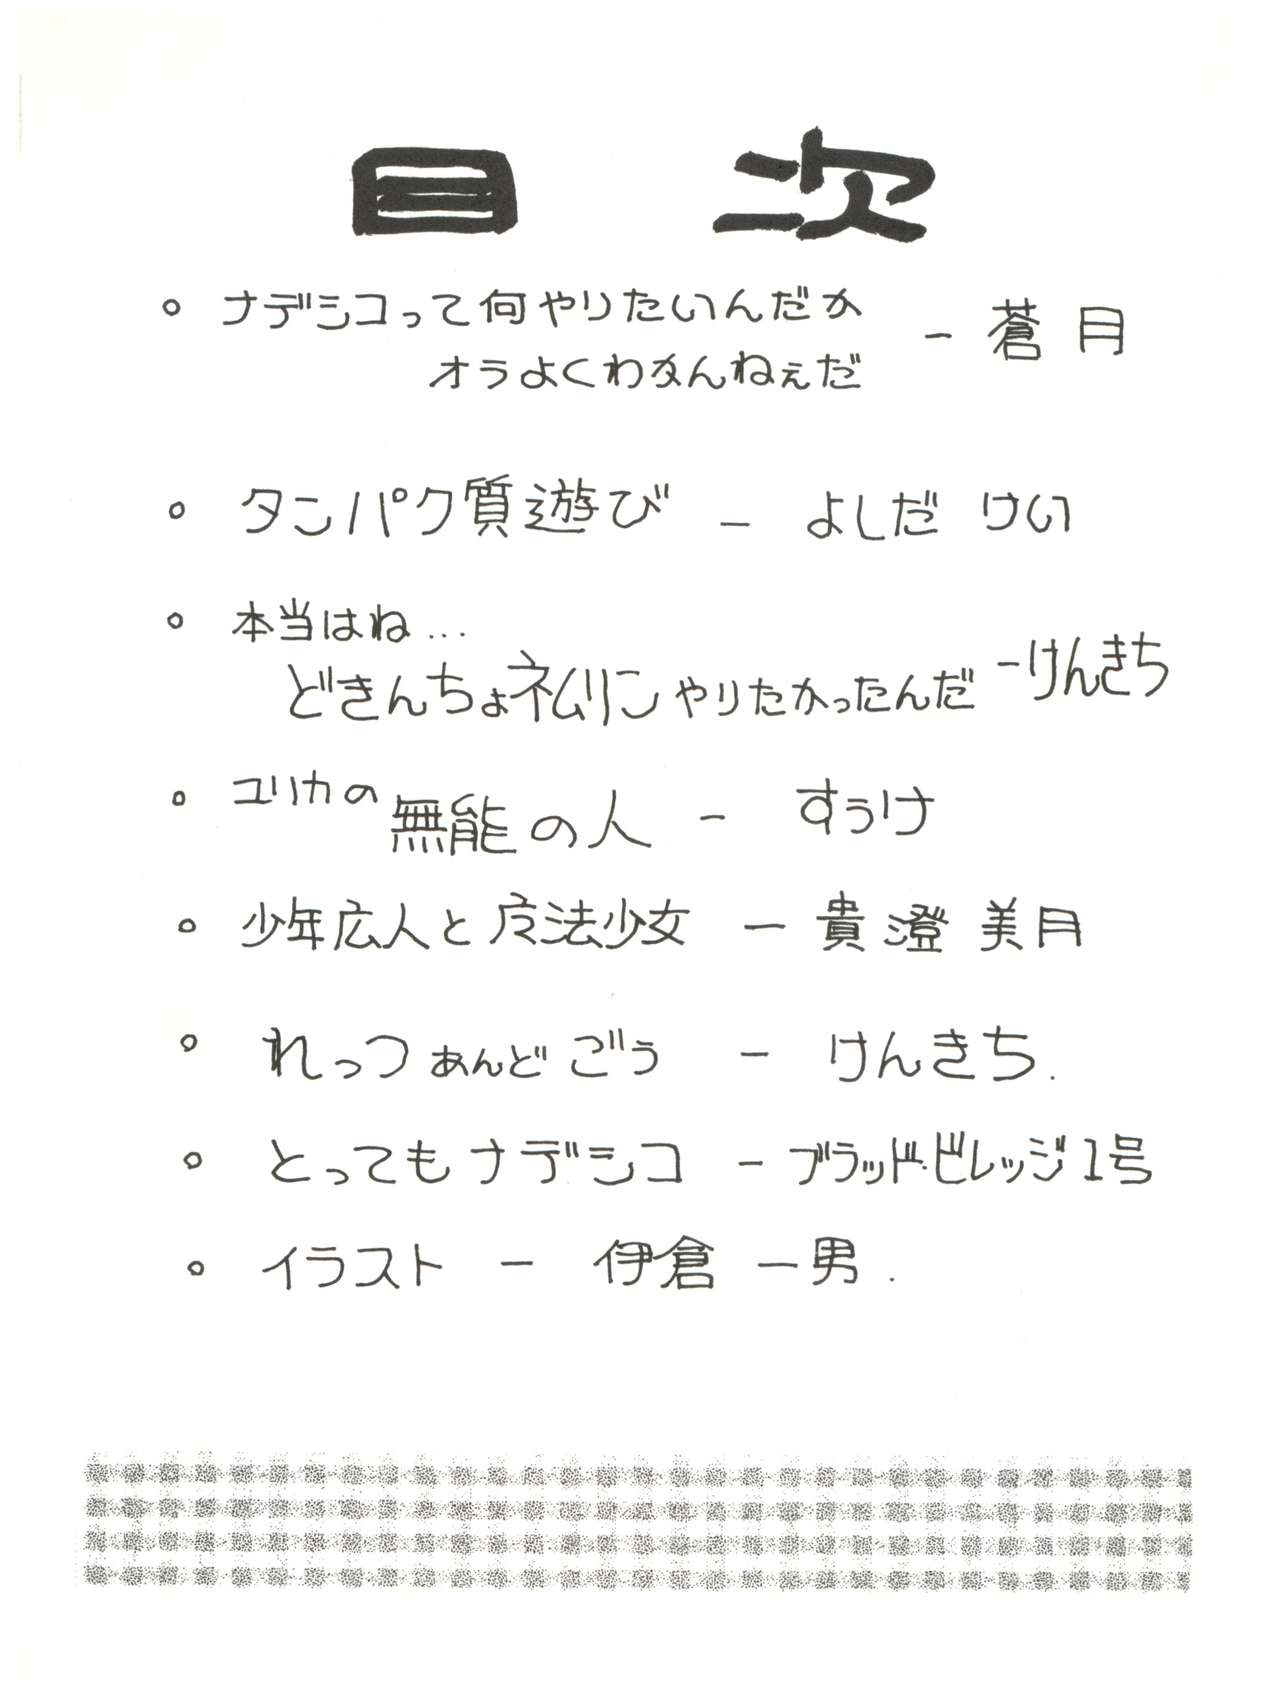 目 次
。ナデシコって何やりたいんだか
オラよくわかんねぇだ － 蒼月
。タンパク質遊び － よしだ けい
。本当はね...
どきんちょネムリンやりたかったんだ －けんきち
。ユリカの無能の人 － すぅけ
。少年広人と魔法少女 － 貴澄 美月
。れっつあんどごう － けんきち.
。とってもナデシコ － ブラッド・ビレッジ1号
。イラスト － 伊倉 一男.